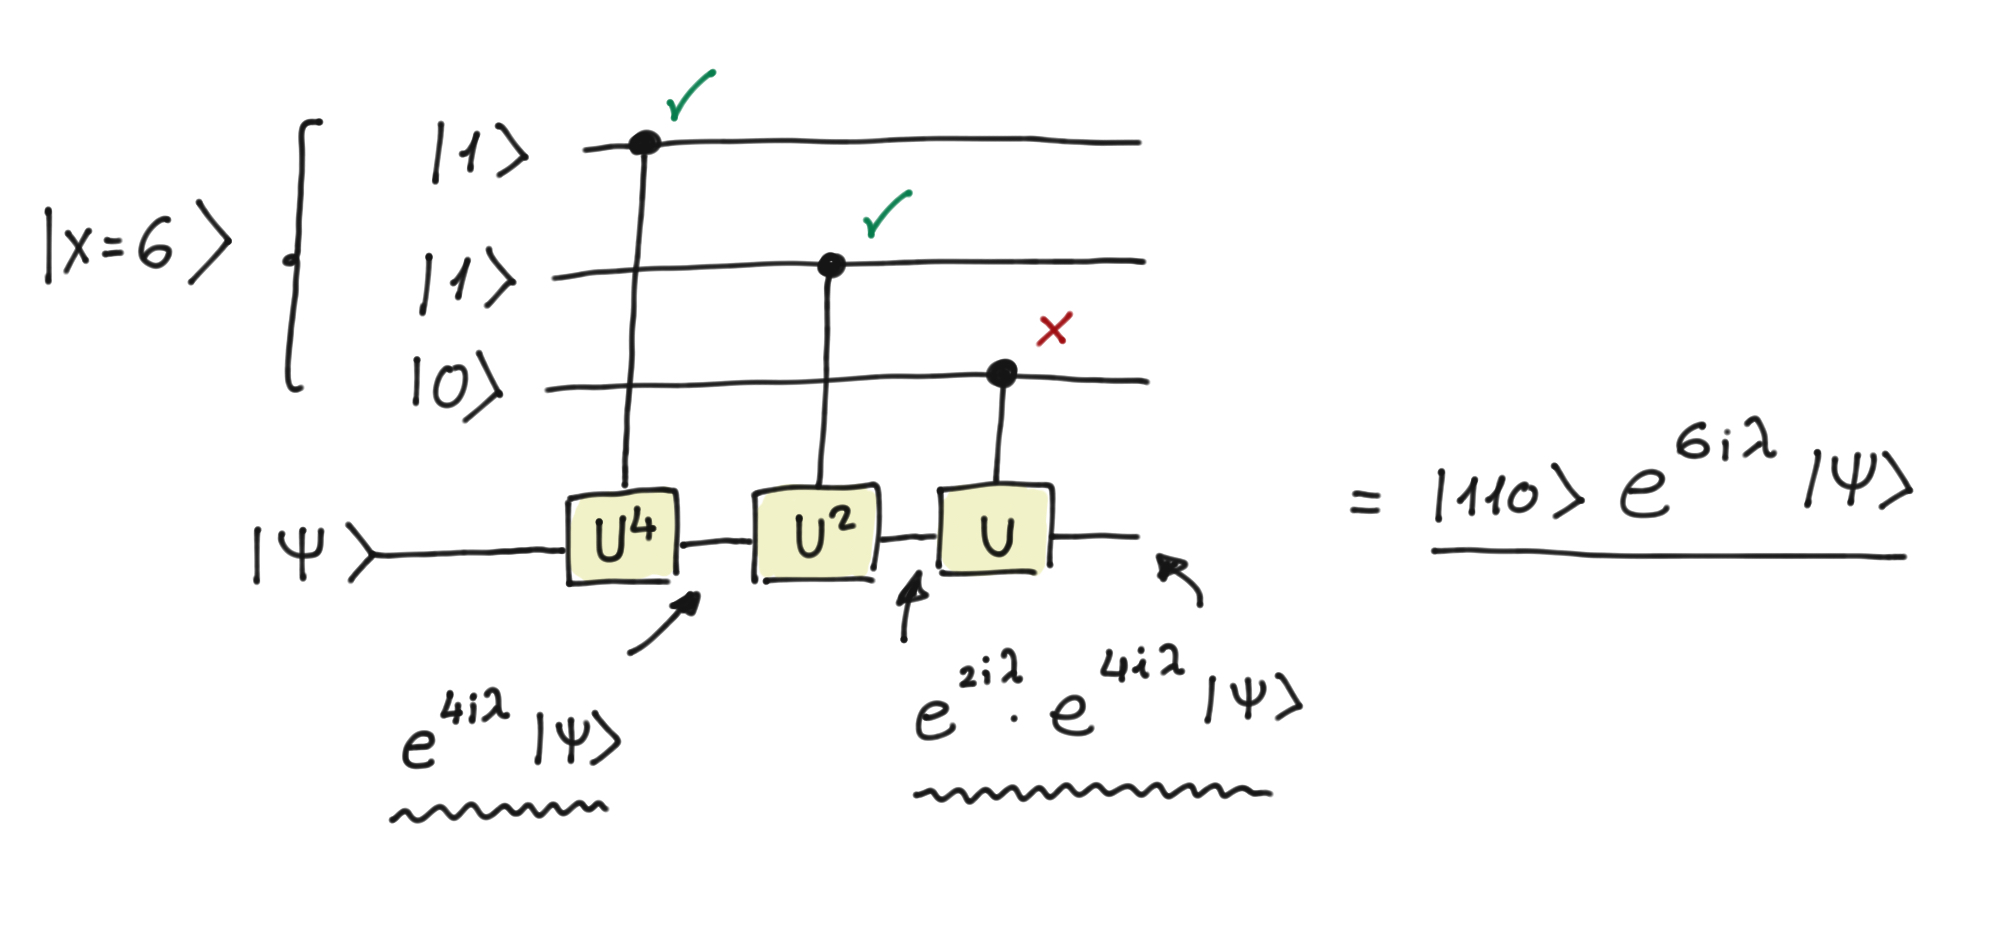 |x=6⟩
|1⟩
|1⟩
|0⟩
|ψ⟩ U⁴ U² U
= |110⟩ e^{6iλ} |ψ⟩
e^{4iλ} |ψ⟩
e^{2iλ} · e^{4iλ} |ψ⟩